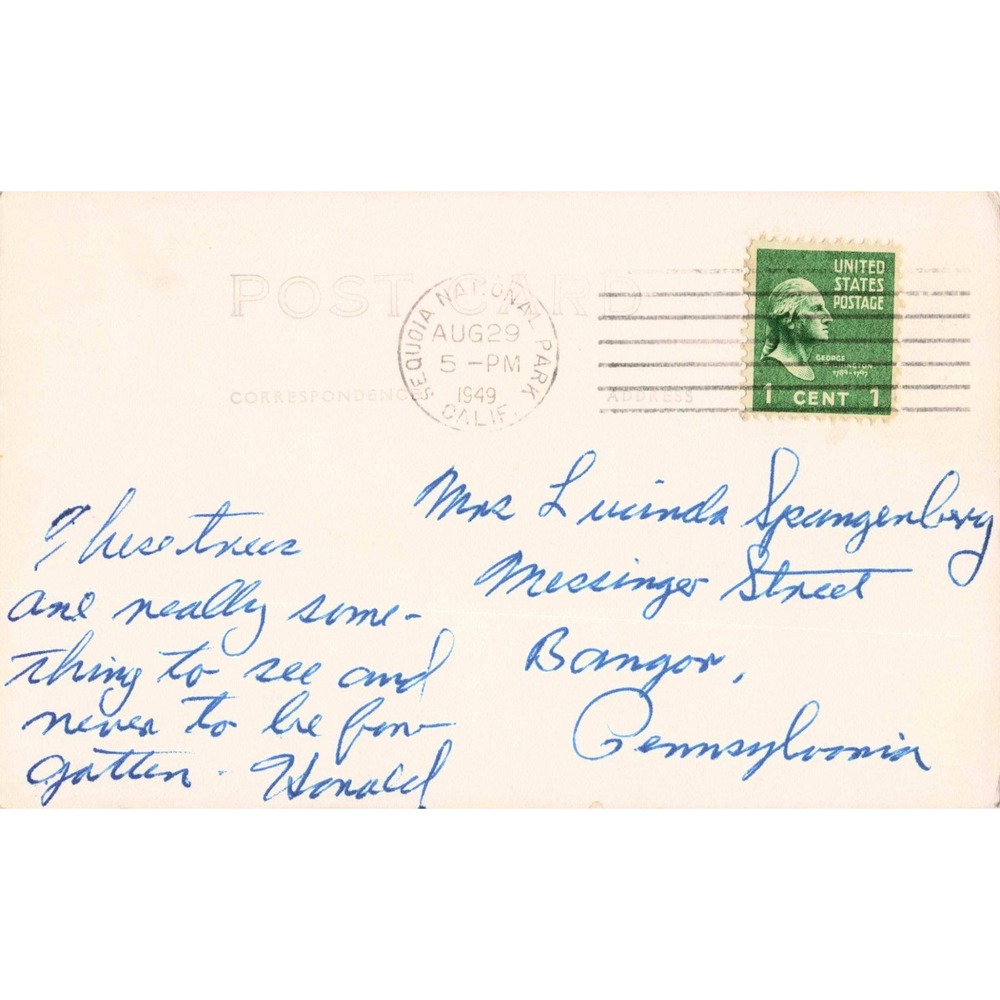 POST CARD
SEQUOIA NATIONAL PARK
AUG 29
5 - PM
1949
CALIF.
UNITED
STATES
POSTAGE
GEORGE
WASHINGTON
1789-1797
1 CENT 1
CORRESPONDENCE
ADDRESS
These trees
are really some-
thing to see and
never to be for-
gotten.
Mrs Lucinda Spangenberg
Messinger Street
Bangor,
Pennsylvania